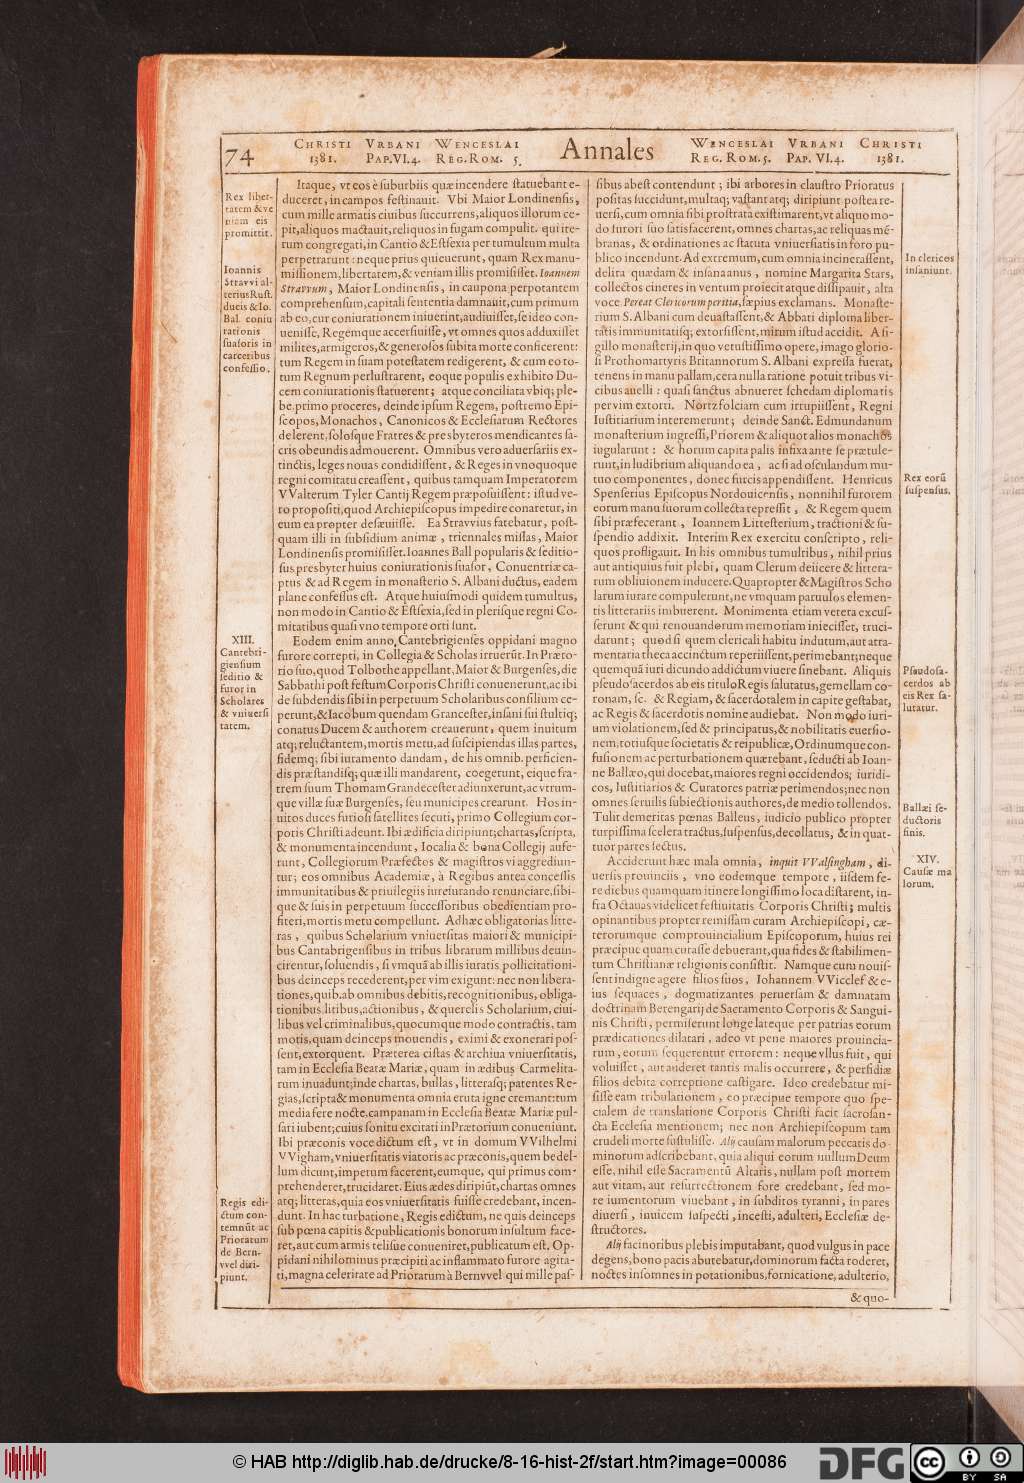 74
CHRISTI VRBANI WENCESLAI
1381. PAP. VI. 4. REG. ROM. 5.
Annales
WENCESLAI VRBANI CHRISTI
REG. ROM. 5. PAP. VI. 4. 1381.
Rex liber-
tatem & ve
niam eis
promittit.
Ioannis
Stravvi al-
terius Rust.
ducis & Io.
Bal. coniu
rationis
suasoris in
carceribus
confessio.
XIII.
Cantebri-
giensium
seditio &
furor in
Scholares
& vniuersi
tatem.
Regis edi-
ctum con-
temnũt ac
Prioratum
de Bern-
vvel diri-
piunt.
Itaque, vt eos è suburbiis quæ incendere statuebant e-
duceret, in campos festinauit. Vbi Maior Londinensis,
cum mille armatis ciuibus succurrens, aliquos illorum ce-
pit, aliquos mactauit, reliquos in fugam compulit. qui ite-
rum congregati, in Cantio & Estsexia per tumultum multa
perpetrarunt: neque prius quieuerunt, quam Rex manu-
missionem, libertatem, & veniam illis promisisset. Ioannem
Stravvum, Maior Londinensis, in caupona perpotantem
comprehensum, capitali sententia damnauit, cum primum
ab eo, cur coniurationem iniuerint, audiuisset, se ideo con-
uenisse, Regemque accersiuisse, vt omnes quos adduxisset
milites, armigeros, & generosos subita morte conficerent:
tum Regem in suam potestatem redigerent, & cum eo to-
tum Regnum perlustrarent, eoque populis exhibito Du-
cem coniurationis statuerent; atque conciliata vbiq; ple-
be, primo proceres, deinde ipsum Regem, postremo Epi-
scopos, Monachos, Canonicos & Ecclesiarum Rectores
delerent, solosque Fratres & presbyteros mendicantes sa-
cris obeundis admouerent. Omnibus vero aduersariis ex-
tinctis, leges nouas condidissent, & Reges in vnoquoque
regni comitatu creassent, quibus tamquam Imperatorem
VValterum Tyler Cantij Regem præposuissent: istud ve-
ro propositi, quod Archiepiscopus impedire conaretur, in
eum ea propter desæuiisse. Ea Stravvius fatebatur, post-
quam illi in subsidium animæ, triennales missas, Maior
Londinensis promisisset. Ioannes Ball popularis & seditio-
sus presbyter huius coniurationis suasor, Conuentriæ ca-
ptus & ad Regem in monasterio S. Albani ductus, eadem
plane confessus est. Atque huiusmodi quidem tumultus,
non modo in Cantio & Estsexia, sed in plerisque regni Co-
mitatibus quasi vno tempore orti sunt.
Eodem enim anno, Cantebrigienses oppidani magno
furore correpti, in Collegia & Scholas irruerũt. In Præto-
rio suo, quod Tolbothe appellant, Maior & Burgenses, die
Sabbathi post festum Corporis Christi conuenerunt, ac ibi
de subdendis sibi in perpetuum Scholaribus consilium ce-
perunt, & Iacobum quendam Grancester, insani sui stultiq;
conatus Ducem & authorem creauerunt, quem inuitum
atq; reluctantem, mortis metu, ad suscipiendas illas partes,
fidemq; sibi iuramento dandam, de his omnib. perficien-
dis præstandisq; quæ illi mandarent, coegerunt, eique fra-
trem suum Thomam Grandecester adiunxerunt, ac vtrum-
que villæ suæ Burgenses, seu municipes crearunt. Hos in-
uitos duces furiosi satellites secuti, primo Collegium cor-
poris Christi adeunt. Ibi ædificia diripiunt; chartas, scripta,
& monumenta incendunt, Iocalia & bona Collegij aufe-
runt, Collegiorum Præfectos & magistros vi aggrediun-
tur; eos omnibus Academiæ, à Regibus antea concessis
immunitatibus & priuilegiis iuresurando renunciare, sibi-
que & suis in perpetuum successoribus obedientiam pro-
fiteri, mortis metu compellunt. Adhæc obligatorias litte-
ras, quibus Scholarium vniuersitas maiori & municipi-
bus Cantabrigensibus in tribus librarum millibus deuin-
cirentur, soluendis, si vmquã ab illis iuratis pollicitationi-
bus deinceps recederent, per vim exigunt: nec non libera-
tiones, quib. ab omnibus debitis, recognitionibus, obliga-
tionibus litibus, actionibus, & querelis Scholarium, ciui-
libus vel criminalibus, quocumque modo contractis, tam
motis, quam deinceps mouendis, eximi & exonerari pos-
sent, extorquent. Præterea cistas & archiua vniuersitatis,
tam in Ecclesia Beatæ Mariæ, quam in ædibus Carmelita-
rum inuadunt; inde chartas, bullas, litterasq; patentes Re-
gias, scripta & monumenta omnia eruta igne cremant: tum
media fere nocte, campanam in Ecclesia Beatæ Mariæ pul-
sari iubent; cuius sonitu excitati in Prætorium conueniunt.
Ibi præconis voce dictum est, vt in domum VVilhelmi
VVigham, vniuersitatis viatoris ac præconis, quem bedel-
lum dicunt, impetum facerent, eumque, qui primus com-
prehenderet, trucidaret. Eius ædes diripiũt, chartas omnes
atq; litteras, quia eos vniuersitatis fuisse credebant, incen-
dunt. In hac turbatione, Regis edictum, ne quis deinceps
sub pœna capitis & publicationis bonorum insultum face-
ret, aut cum armis telisue conueniret, publicatum est. Op-
pidani nihilominus præcipiti ac inflammato furore agita-
ti, magna celeritate ad Prioratum à Bernvvel qui mille pas-
sibus abest contendunt; ibi arbores in claustro Prioratus
positas succidunt, multaq; vastant atq; diripiunt postea re-
uersi, cum omnia sibi prostrata existimarent, vt aliquo mo-
do furori suo satisfacerent, omnes chartas, ac reliquas mẽ-
branas, & ordinationes ac statuta vniuersiatis in foro pu-
blico incendunt. Ad extremum, cum omnia incinerassent,
delira quædam & insana anus, nomine Margarita Stars,
collectos cineres in ventum proiecit atque dissipauit, alta
voce Pereat Clericorum peritia, sæpius exclamans. Monaste-
rium S. Albani cum deuastassent, & Abbati diploma liber-
tatis immunitatisq; extorsissent, mirum istud accidit. A si-
gillo monasterij, in quo vetustissimo opere, imago glorio-
si Prothomartyris Britannorum S. Albani expressa fuerat,
tenens in manu pallam, cera nulla ratione potuit tribus vi-
cibus auelli: quasi sanctus abnueret schedam diplomatis
per vim extorti. Nortzfolciam cum irrupiissent, Regni
Iustitiarium interemerunt; deinde Sanct. Edmundanum
monasterium ingressi, Priorem & aliquot alios monachos
iugularunt: & horum capita palis infixa ante se prætule-
runt, in ludibrium aliquando ea, ac si ad osculandum mu-
tuo componentes, donec furcis appendissent. Henricus
Spenserius Episcopus Nordouicensis, nonnihil furorem
eorum manu suorum collecta repressit, & Regem quem
sibi præfecerant, Ioannem Littesterium, tractioni & su-
spendio addixit. Interim Rex exercitu conscripto, reli-
quos profligauit. In his omnibus tumultibus, nihil prius
aut antiquius fuit plebi, quam Clerum deiicere & littera-
rum obliuionem inducere. Quapropter & Magistros Scho
larum iurare compulerunt, ne vmquam paruulos elemen-
tis litterariis imbuerent. Monimenta etiam vetera excus-
serunt & qui renouandorum memotiam iniecisset, truci-
darunt; quod si quem clericali habitu indutum, aut atra-
mentaria theca accinctum reperiissent, perimebant; neque
quemquã iuri dicundo addictum viuere sinebant. Aliquis
pseudosacerdos ab eis titulo Regis salutatus, gemellam co-
ronam, sc. & Regiam, & sacerdotalem in capite gestabat,
ac Regis & sacerdotis nomine audiebat. Non modo iuri-
um violationem, sed & principatus, & nobilitatis euersio-
nem, totiusque societatis & reipublicæ, Ordinumque con-
fusionem ac perturbationem quærebant, seducti ab Ioan-
ne Ballæo, qui docebat, maiores regni occidendos; iuridi-
cos, Iustitiarios & Curatores patriæ perimendos; nec non
omnes seruilis subiectionis authores, de medio tollendos.
Tulit demeritas pœnas Balleus, iudicio publico propter
turpissima scelera tractus, suspensus, decollatus, & in quat-
tuor partes sectus.
Acciderunt hæc mala omnia, inquit VValsingham, di-
uersis prouinciis, vno eodemque tempore, iisdem fe-
re diebus quamquam itinere longissimo loca distarent, in-
fra Octauas videlicet festiuitatis Corporis Christi; multis
opinantibus propter remissam curam Archiepiscopi, cæ-
terorumque comprouincialium Episcoporum, huius rei
præcipue quam curasse debuerant, qua fides & stabilimen-
tum Christianæ religionis consistit. Namque cum nouis-
sent indigne agere filios suos, Iohannem VVicclef & e-
ius sequaces, dogmatizantes peruersam & damnatam
doctrinam Berengarij de Sacramento Corporis & Sangui-
nis Christi, permiserunt longe lateque per patrias eorum
prædicationes dilatari, adeo vt pene maiores prouincia-
rum, eorum sequerentur errorem: neque vllus fuit, qui
voluisset, aut auderet tantis malis occurrere, & perfidiæ
filios debita correptione castigare. Ideo credebatur mi-
sisse eam tribulationem, eo præcipue tempore quo spe-
cialem de translatione Corporis Christi facit sacrosan-
cta Ecclesia mentionem; nec non Archiepiscopum tam
crudeli morte sustulisse. Alij causam malorum peccatis do-
minorum adscribebant, quia aliqui eorum nullum Deum
esse, nihil esse Sacramentũ Altaris, nullam post mortem
aut vitam, aut resurrectionem fore credebant, sed mo-
re iumentorum viuebant, in subditos tyranni, in pares
diuersi, inuicem suspecti, incesti, adulteri, Ecclesiæ de-
structores.
Alij facinoribus plebis imputabant, quod vulgus in pace
degens, bono pacis abutebatur, dominorum facta roderet,
noctes insomnes in potationibus, fornicatione, adulterio,
& quo-
In clericos
insaniunt.
Rex eorũ
suspensus.
Pseudosa-
cerdos ab
eis Rex sa-
lutatur.
Ballæi se-
ductoris
finis.
XIV.
Causæ ma
lorum.
© HAB http://diglib.hab.de/drucke/8-16-hist-2f/start.htm?image=00086
DFG
cc
BY SA